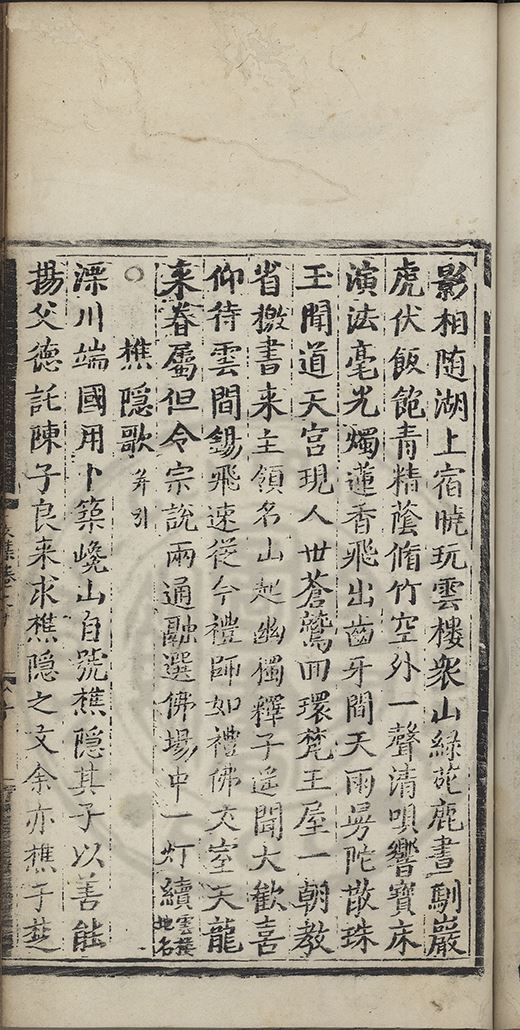 影相随湖上宿曉玩雲樓衆山綠苑鹿晝馴巖
虎伏飯飽青精蔭脩竹空外一聲清唄響寶床
演法毫光燭蓮香飛出齒牙間天雨曼陀散珠
玉聞道天宮現人世蒼鷲回環梵王屋一朝教
省檄書来主領名山起幽獨釋子遥聞大歡喜
仰待雲間錫飛速從今禮師如禮佛丈室天龍
来眷屬但令宗說兩通融選佛場中一灯續雲樓地名
○樵隠歌并引
溧川端國用卜築巉山自號樵隠其子以善能
揚父德託陳子良来求樵隠之文余亦樵子